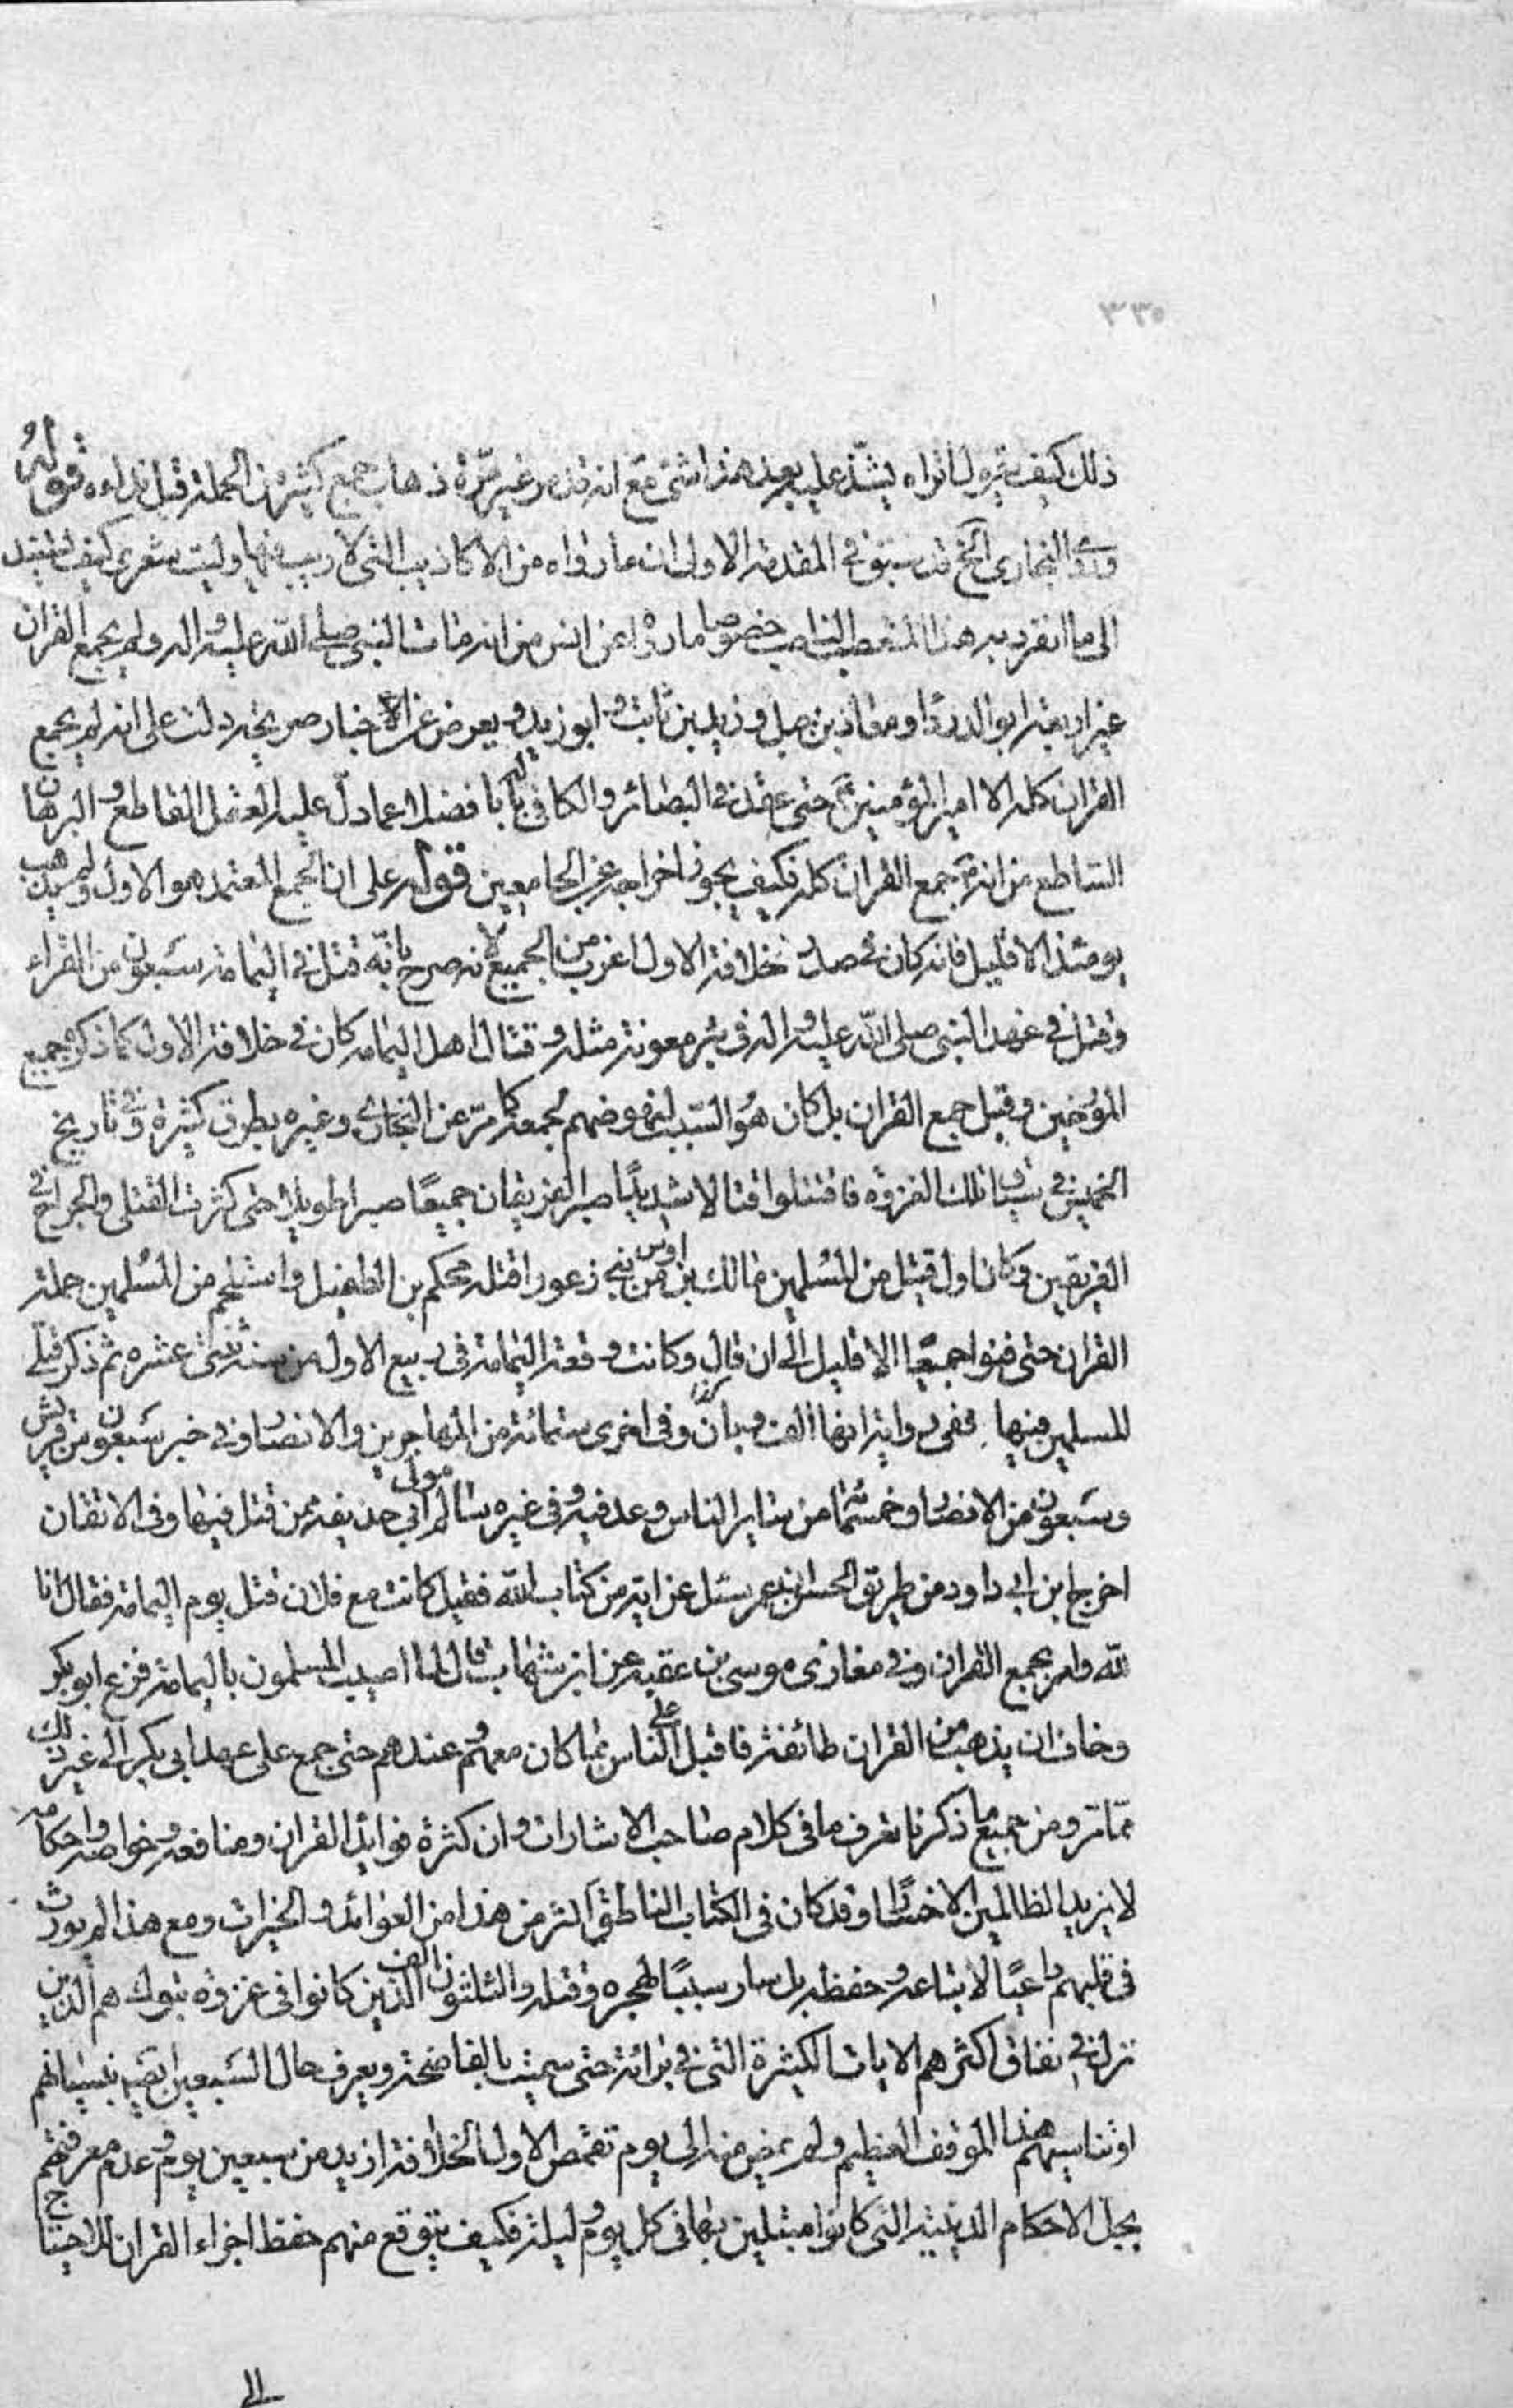 ٣٣٥
ذلك كيف يقول اتراه يشذ عليه بعد هذا شئ مع انه قد مر غير مرة ذهاب جمع كثير من الحملة قبل نداءه قوله
وروى البخارى الخ قد سبق فى المقدمة الاولى ان ما رواه من الاكاذيب التى لا ريب فيها وليت شعرى كيف يستند
الى ما انفرد به هذا المتعصب الناصب خصوصا ما رواه عن انس من انه مات النبى صلى الله عليه واله ولم يجمع القران
غير اربعة ابو الدرداء ومعاذ بن جبل وزيد بن ثابت وابو زيد ويعرض عن الاخبار صريحة دلت على انه لم يجمع
القران كله الا امير المؤمنين ع حتى عقد فى البصائر والكافى له بابا فضلا عما دل عليه العقل القاطع والبرهان
الساطع من انه ع جمع القران كله فكيف يجوز اخراجه عن الجامعين قوله على ان الجمع المعتمد هو الاول ولم يذهب
يومئذ الا قليل فانه كان فى صدر خلافة الاول اغرب من الجميع لانه صرح بانه قتل فى اليمامة سبعون من القراء
وقتل فى عهد النبى صلى الله عليه واله فى بئر معونة مثله وقتال اهل اليمامة كان فى خلافة الاول كما ذكره جميع
المؤرخين وقبل جمع القران بل كان هو السبب لنهوضهم لجمعه كما مر عن البخارى وغيره بطرق كثيرة وفى تاريخ
الخميس فى سياق تلك الغزوة فاقتتلوا قتالا شديدا صبر الفريقان جميعا صبرا طويلا حتى كثرت القتلى والجراح فى
الفريقين وكان اول قتيل من المسلمين مالك بن اوس من بنى زعورا قتله محكم بن الطفيل واستلحم من المسلمين حملة
القران حتى فنوا جميعا الا قليل الى ان قال وكانت وقعة اليمامة فى ربيع الاول من سنة ثنتى عشره ثم ذكر قتلى
المسلمين فيها ففى رواية انها الف ومأتان وفى اخرى ستمائة من المهاجرين والانصار وفى خبر سبعون من قريش
وسبعون من الانصار وخمسمأة من سائر الناس وعد فيه وفى غيره سالم مولى ابى حذيفة ممن قتل فيها وفى الاتقان
اخرج ابن ابى داود من طريق الحسن ان عمر سئل عن اية من كتاب الله فقيل كانت مع فلان قتل يوم اليمامة فقال انا
لله وامر بجمع القران وفى مغازى موسى بن عقبه عن ابن شهاب قال لما اصيب المسلمون باليمامة فزع ابو بكر
وخاف ان يذهب من القران طائفة فاقبل الناس بما كان معهم وعندهم حتى جمع على عهد ابى بكر الى غير ذلك
مما مر ومن جميع ما ذكرنا تعرف ما فى كلام صاحب الاشارات وان كثرة فوائد القران ومنافعه وخواصه واحكامه
لا يزيد الظالمين الا خسارا وقد كان فى الكتاب الناطق اكثر من هذا من العوائد والخيرات ومع هذا لم يورث
فى قلبهم داعيا لاتباعه وحفظه بل صار سببا لهجره وقتله والثلثون الف الذين كانوا فى غزوة تبوك هم الذين
نزل فى نفاق اكثرهم الايات الكثيرة التى فى برائة حتى سميت بالفاضحة ويعرف حال السبعين بقصية نسيانهم
او تناسيهم هذا الموقف العظيم ولم يمض منه الى يوم تقمص الاول الخلافة ازيد من سبعين يوم وعدم معرفتهم
بجل الاحكام الدينية التى كانوا مبتلين بها فى كل يوم وليلة فكيف يتوقع منهم حفظ اجزاء القران للاحتياج
الى